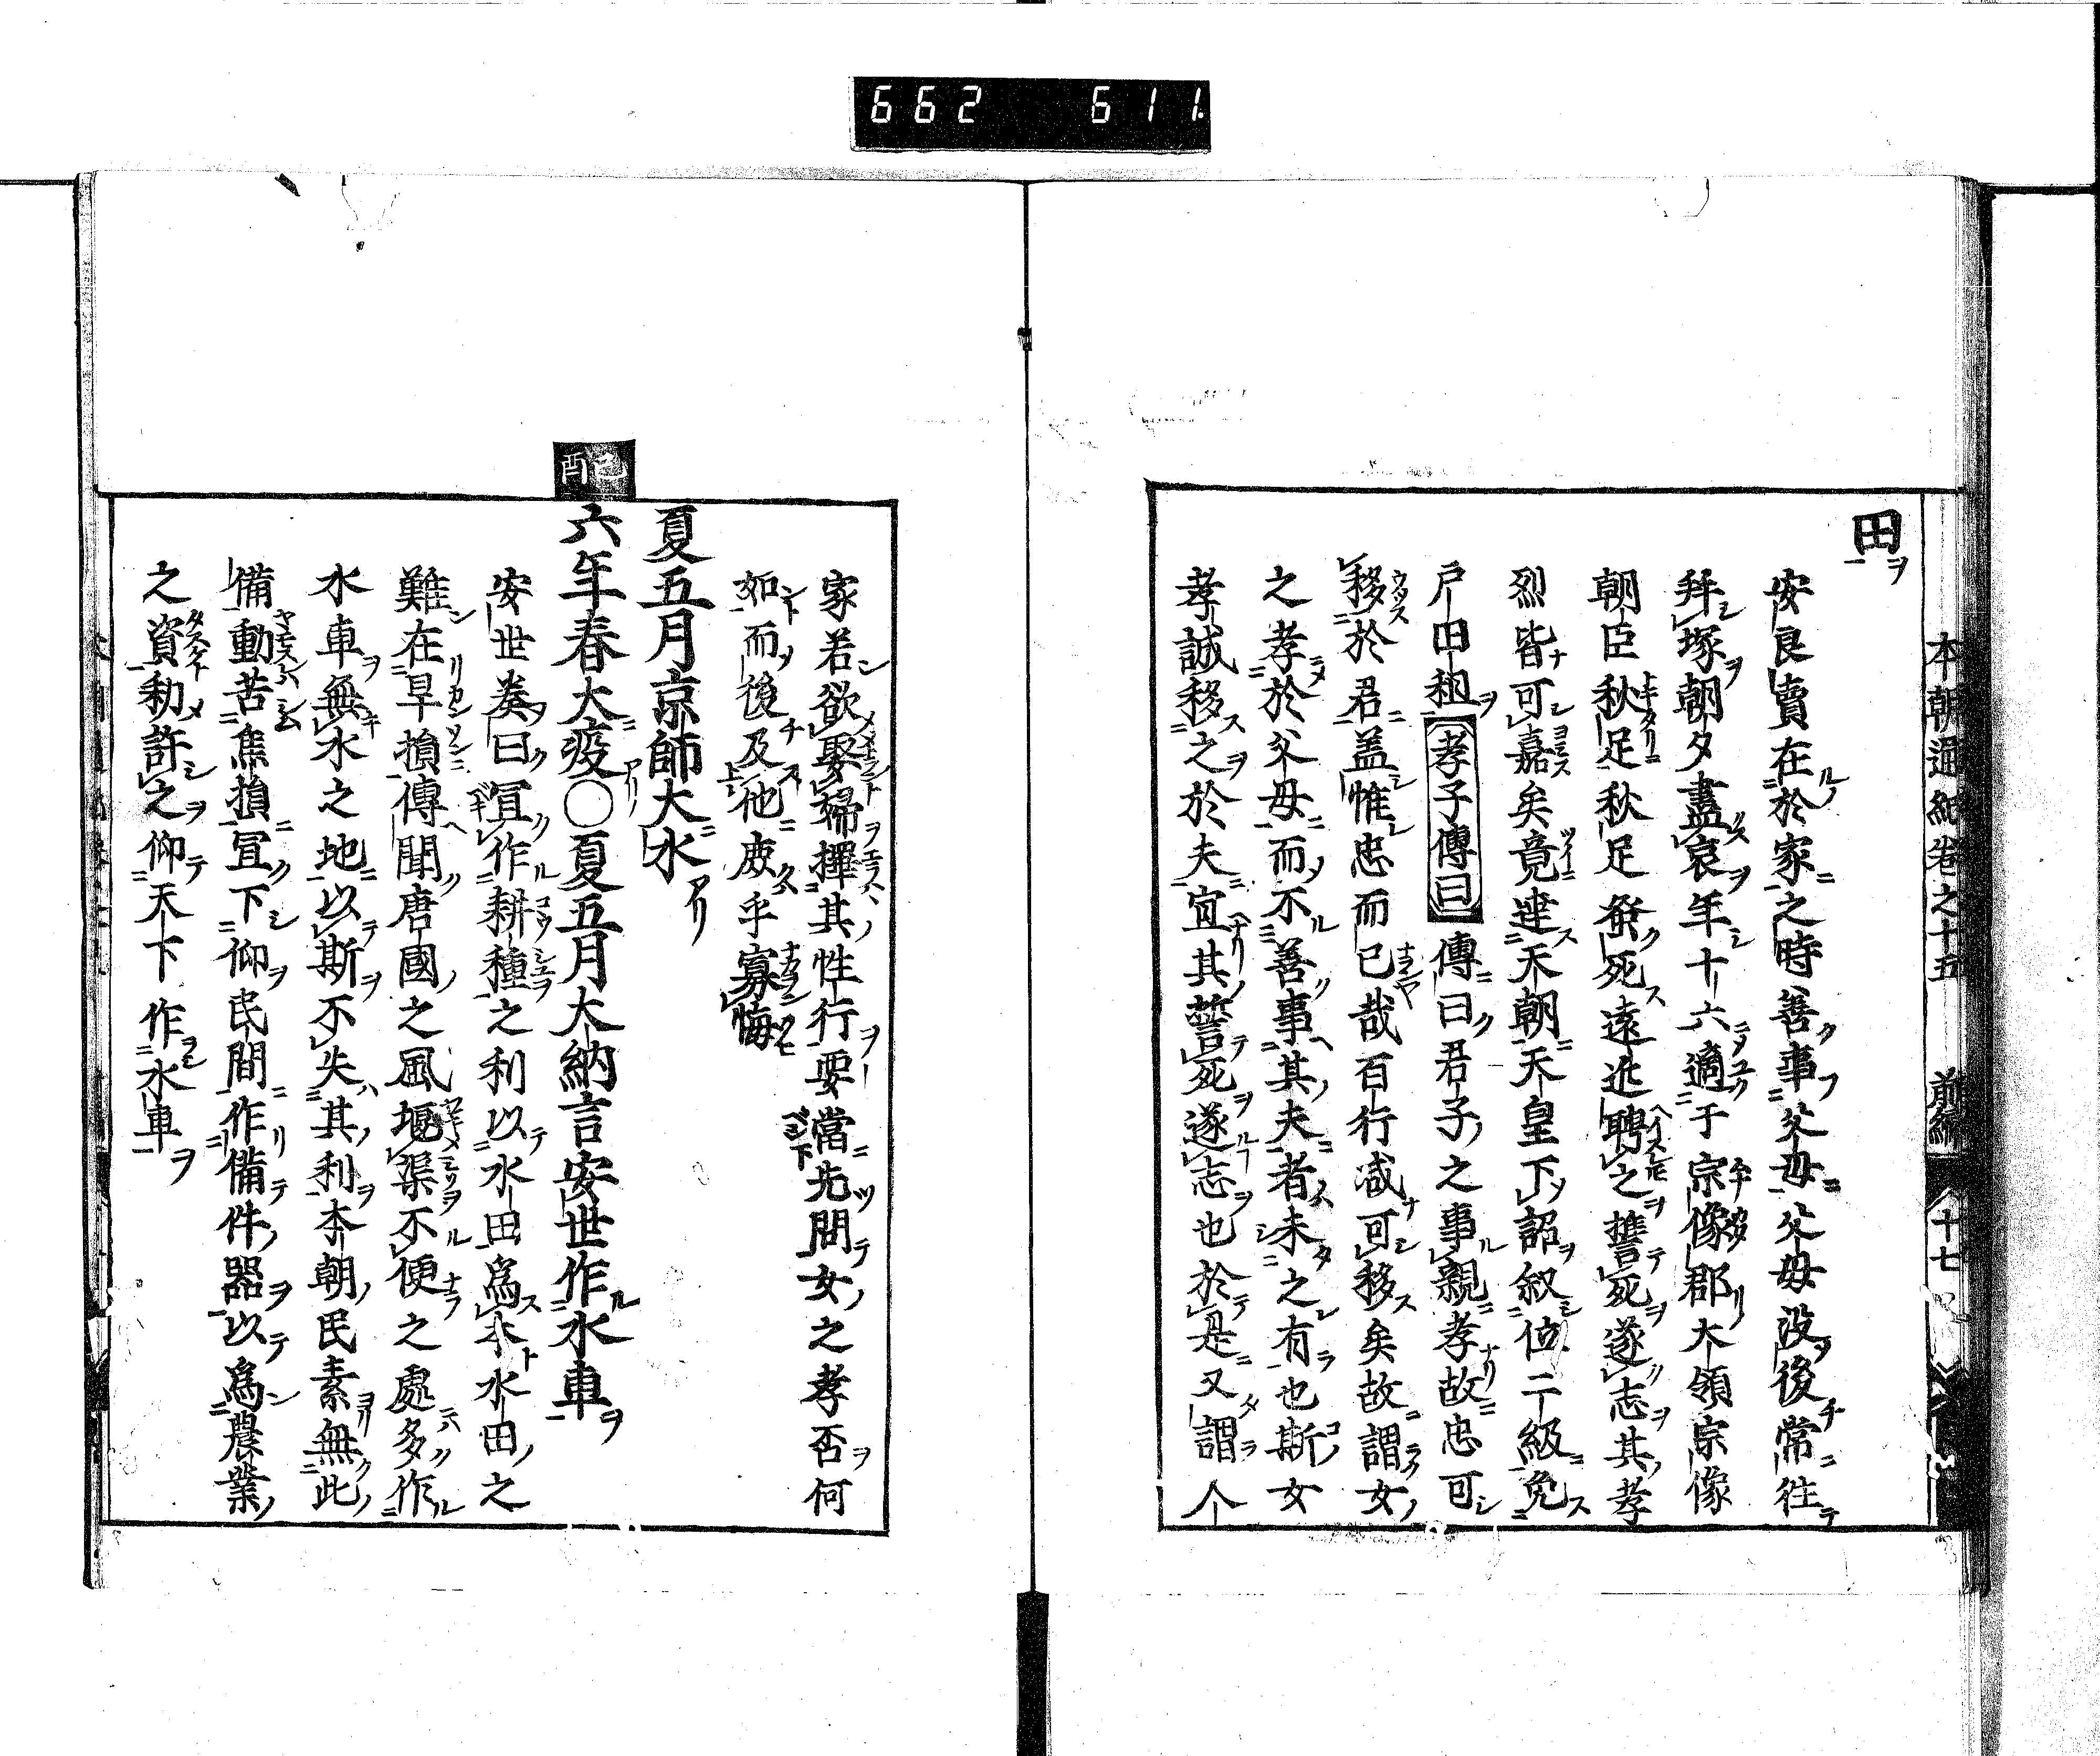 662 611.
本朝通紀卷之十五 前編 十七
田ヲ
安良賣在於家之時善事父母父母没後常往
拜塚朝夕盡哀年十六適于宗像郡大領宗像
朝臣秋足秋足發死遠近聘之誓死遂志其孝
烈皆可嘉矣竟達天朝天皇下詔叙位二級免
戸田租孝子傳曰傳曰君子之事親孝故忠可
移於君蓋惟忠而已哉百行咸可移矣故謂女
之孝於父母而不善事其夫者未之有也斯女
孝誠移之於夫宜其誓死遂志也於是又謂人
家若欲娶婦擇其性行要當先問女之孝否何
如而後及他處乎寡悔
夏五月京師大水
己酉
六年春大疫〇夏五月大納言安世作水車
安世奏曰宜作耕種之利以水田爲本水田之
難在旱損傳聞唐國之風堰渠不便之處多作
水車無水之地以斯不失其利本朝民素無此
備動苦焦損宜下仰民間作備件器以爲農業
之資勅許之仰天下作水車